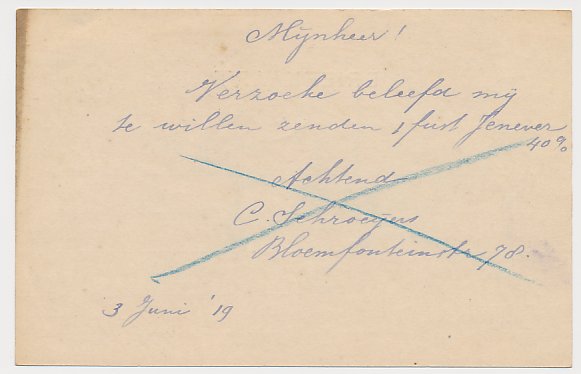 Mijnheer!
Verzoeke beleefd mij
te willen zenden 1 fust Jenever
40%
Achtend
C. Schroeyers
Bloemfonteinstr 78.
3 Juni '19